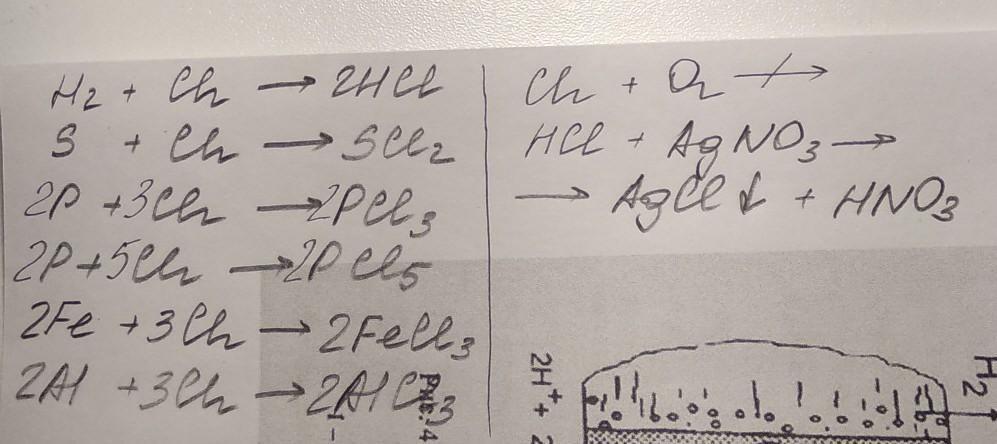 H₂ + Cl₂ → 2HCl
S + Cl₂ → SCl₂
2P + 3Cl₂ → 2PCl₃
2P + 5Cl₂ → 2PCl₅
2Fe + 3Cl₂ → 2FeCl₃
2Al + 3Cl₂ → 2AlCl₃
Cl₂ + O₂ ↛
HCl + AgNO₃ →
→ AgCl↓ + HNO₃
2H⁺ + 2
H₂
Рис. 4